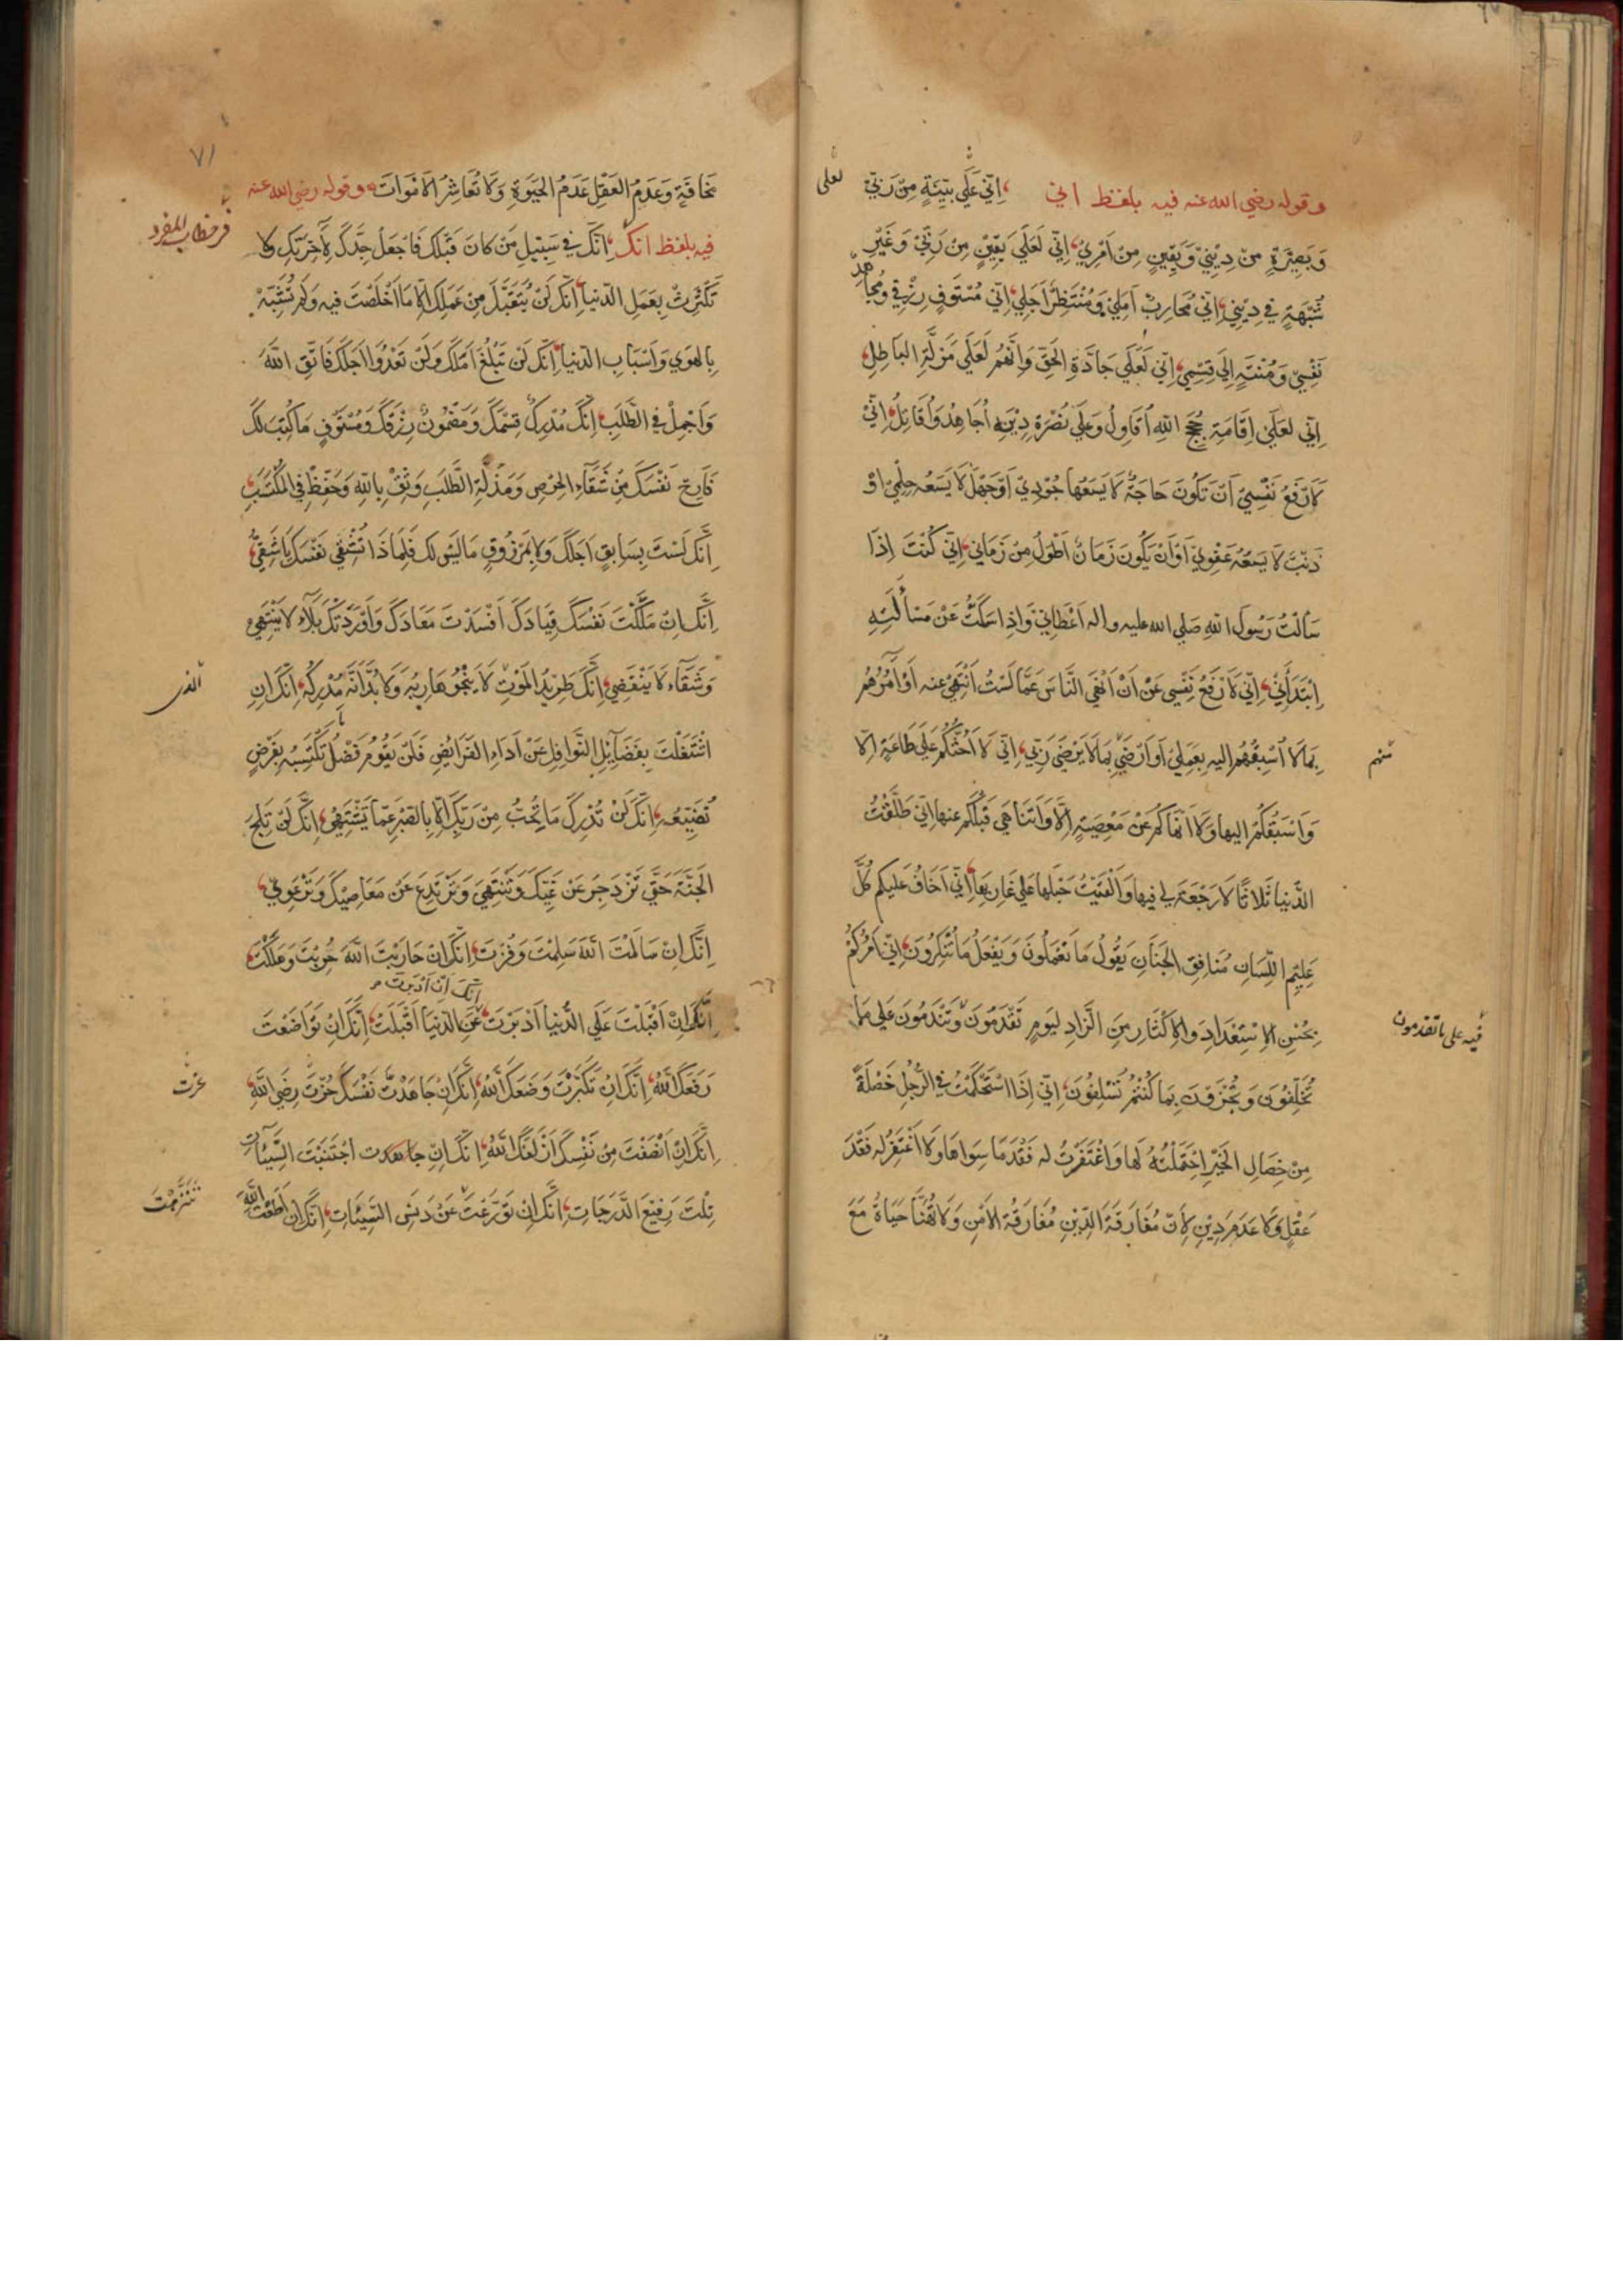 وقوله رضي الله عنه فيه بلفظ اني ، اِنّي عَلَي بَيِّنَةٍ مِنْ رَبّي
لعلى
وَبَصِيْرَةٍ مِنْ دِيْنِيْ وَيَقِينٍ مِنْ اَمْرِيْ، اِنّي لَعَلَي يَقِيْنٍ مِنْ رَبّيْ وَغَيْرِ
شُبْهَةٍ فِي دِيْنِي، اِنّي مُحَارِبٌ اَمَلِيْ وَمُنْتَظِرٌ اَجَلِي، اِنّي مُسْتَوفٍ رِزْقِي وَمُجَاهِدٌ
نَفْسِيْ وَمُنْتَهٍ اِلَي قِسْمِي، اِنّي لَعَلَي جَادَّةِ الحَقِّ وَاِنَّهُم لَعَلَي مَزَلَّةِ البَاطِلِ،
اِنّي لعَلَي اِقَامَةِ حُجَجِ اللهِ اُقَاوِلُ وَعَلَي نُصْرَةِ دِيْنِهِ اُجَاهِدُ وَاُقَاتِلُ، اِنّيْ
لَارْفَعُ نَفْسِيْ اَنْ تَكُونَ حَاجَةٌ لَا يَسَعُهَا جُوْدِيْ اَوْ جَهْلٌ لَا يَسَعُه حِلْمِيْ اَوْ
ذَنْبٌ لَا يَسَعُه عَفْوِيْ اَوْ اَنْ يَكُونَ زَمَانٌ اَطْوَلُ مِنْ زَمَانِي، اِنّي كُنْتُ اِذَا
سَاَلْتُ رَسُولَ اللهِ صَلي الله عليه واله اَعْطَانِيْ وَاِذَا سَكَتُّ عَنْ مَسْأَلَتِهِ
اِبْتَدَأَنِيْ، اِنّي لَارْفَعُ نَفْسِي عَنْ اَنْ اَنْهَي النَّاسَ عَمَّا لَسْتُ اَنْتَهِيْ عنه اَوْ اٰمُرُهُم
بِمَا لَا اَسْبِقُهُم اليه بِعَمَلِيْ اَوْ اَرْضَيْ بِمَا لَا يَرْضَيْ رَبّي، اِنّي لَا اَحُثُّكُم عَلَي طَاعَةٍ اِلّا
منهم
وَاَسْبِقُكُمْ اليها وَلَا اَنْهَاكُم عَنْ مَعْصِيَةٍ اِلَّا وَاَتَنَاهَي قَبْلَكُم عنها اِنّي طَلَّقْتُ
الدُّنيا ثَلاثًا لَا رَجْعَةَ لِي فيها وَاَلْقَيْتُ حَبْلَها عَلي غَارِبِهَا، اِنّي اَخَافُ عَليكم كُلَّ
عَلِيْمِ اللِّسَانِ مُنَافِقِ الجَنَانِ يَقُولُ مَا تَعْمَلُونَ وَيَفْعَلُ مَا تُنْكِرُونَ، اِنّي اٰمُرُكُمْ
بِحُسْنِ الاِسْتِعْدَادِ وَالاِكْثَارِ مِنَ الزَّادِ لِيَومٍ تَقْدَمُونَ وَتَنْدَمُونَ عَلي مَا
فيه على ما تقدمون
تُخَلِّفُونَ وَتُجْزَوْنَ بِمَا كُنْتُمْ تُسْلِفُونَ، اِنّي اِذَا اسْتَحْكَمَتْ فِي الرَّجُلِ خَصْلَةٌ
مِنْ خِصَالِ الخَيْرِ اِحْتَمَلْتُهُ لَهَا وَاغْتَفَرْتُ له فَقْدَ مَا سِوَاهَا وَلَا اَغْتَفِرُ له فَقْدَ
عَقْلٍ وَلَا عَدَمَ دِيْنٍ لِاَنَّ مُفَارَقَةَ الدِّيْنِ مُفَارَقَةُ الاَمْنِ وَلَا تَهْنَأُ حَيَاةٌ مَعَ
٧١
مَخَافَةٍ وَعَدَمُ العَقْلِ عَدَمُ الحَيٰوةِ وَلَا تُعَاشَرُ الاَمْوَاتُ، وقوله رضي الله عنه
فيه بلفظ انك، اِنَّكَ فِي سَبِيْلِ مَنْ كَانَ قَبْلَكَ فَاجْعَلْ جِدَّكَ لِاٰخِرَتِكَ وَلَا
في خطاب المفرد
تَكْتَرِثْ بِعَمَلِ الدّنيا، اِنَّكَ لَنْ يُتَقَبَّلَ مِنْ عَمَلِكَ اِلّا مَا اَخْلَصْتَ فيه وَلَم تُشِبْهُ
بِالهَوي وَاَسْبَابِ الدّنيا، اِنَّكَ لَنْ تَبْلُغَ اَمَلَكَ وَلَنْ تَعْدُوَ اَجَلَكَ فَاتَّقِ اللهَ
وَاَجْمِلْ فِي الطَّلَبِ، اِنَّكَ مُدْرِكٌ قِسْمَكَ وَمَضْمُونٌ رِزْقُكَ وَمُسْتَوفٍ مَا كُتِبَ لَكَ
فَاَرِحْ نَفْسَكَ مِنْ شَقَاءِ الحِرْصِ وَمَذَلَّةِ الطَّلَبِ وَثِقْ بِاللهِ وَخَفِّضْ فِي المُكْتَسَبِ،
اِنَّكَ لَسْتَ بِسَابِقٍ اَجَلَكَ وَلَا بِمَرْزُوقٍ مَا لَيْسَ لَكَ فَلِمَاذَا تُشْقِي نَفْسَكَ يَا شَقِيُّ،
اِنَّكَ اِنْ مَلَّكْتَ نَفْسَكَ قِيَادَكَ اَفْسَدْتَ مَعَادَكَ وَاَوْرَدْتَكَ بَلَاءً لَا يَنْتَهِيْ
وَشَقَاءً لَا يَنْقَضِيْ، اِنَّكَ طَرِيْدُ المَوْتِ لَا يَنْجُوْ هَارِبُه وَلَا بُدَّ اَنَّه مُدْرِكُه، اِنَّكَ اِنِ
الذى
اشْتَغَلْتَ بِفَضَايِلِ النَّوَافِلِ عَنْ اَدَاءِ الفَرَايِضِ فَلَنْ يَقُومَ فَضْلٌ تَكْتَسِبُه بِفَرْضٍ
تُضَيِّعُه، اِنَّكَ لَنْ تُدْرِكَ مَا تُحِبُّ مِنْ رَبِّكَ اِلّا بِالصَّبْرِ عَمَّا تَشْتَهِيْ، اِنَّكَ لَنْ تَلِجَ
الجَنَّةَ حَتَّي تَزْدَجِرَ عَنْ غَيِّكَ وَتَنْتَهِيَ وَتَرْتَدِعَ عَنْ مَعَاصِيْكَ وَتَرْعَوِيْ،
اِنَّكَ اِنْ سَالَمْتَ اللهَ سَلِمْتَ وَفُزْتَ، اِنَّكَ اِنْ حَارَبْتَ اللهَ حُرِبْتَ وَهَلَكْتَ
انك ان ادبرت
اِنَّكَ اِنْ اَقْبَلْتَ عَلَي الدُّنيا اَدْبَرَتْ عَنِ الدّنيا اَقْبَلَتْ، اِنَّكَ اِنْ تَوَاضَعْتَ
رَفَعَكَ اللهُ، اِنَّكَ اِنْ تَكَبَّرْتَ وَضَعَكَ اللهُ، اِنَّكَ اِنْ جَاهَدْتَ نَفْسَكَ حُزْتَ رِضَي اللهِ،
اِنَّكَ اِنْ اَنْصَفْتَ مِنْ نَفْسِكَ اَزْلَفَكَ اللهُ، اِنَّكَ اِنْ جاهدت اجْتَنَبْتَ السَّيِّئَاتِ
نِلْتَ رَفِيْعَ الدَّرَجَاتِ، اِنَّكَ اِنْ تَوَرَّعْتَ عَنْ دَنَسِ السَّيِّئَاتِ، اِنَّكَ اِنْ اَطَعْتَ اللهَ